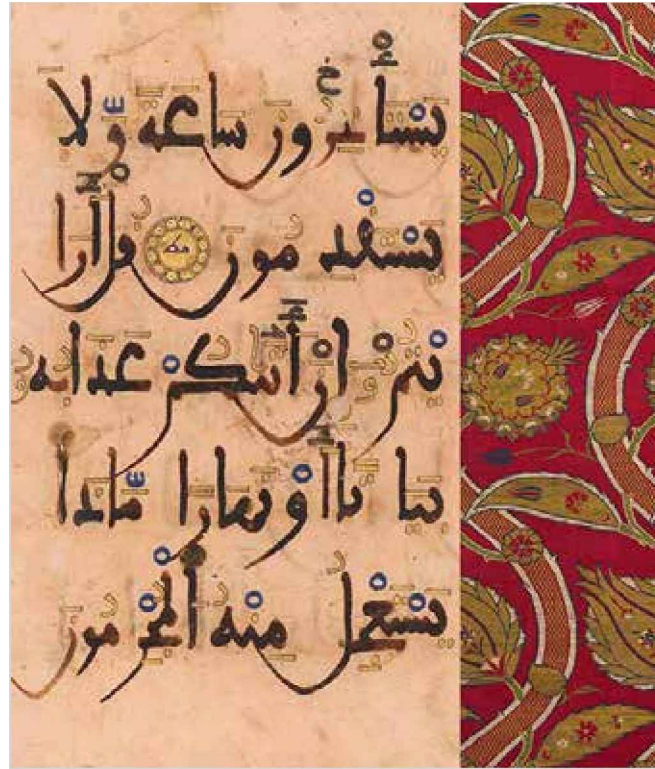 يستأخرون ساعة ولا
يستقدمون قل أرا
يتم إن أتىكم عذابه
بياتا أو نهارا ماذا
يستعجل منه المجرمون